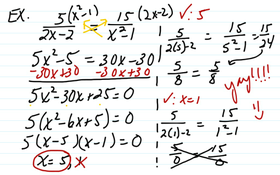 EX. 5(x²-1)/(2x-2) = 15(2x-2)/(x²-1)
5x²-5 = 30x-30
-30x+30 -30x+30
5x²-30x+25=0
5(x²-6x+5)=0
5(x-5)(x-1)=0
x=5,
✓: 5
5/(2(5)-2) = 15/(5²-1) = 15/24
5/8 = 5/8
yay!!!!
✓: x=1
5/(2(1)-2) = 15/(1²-1)
5/0 15/0